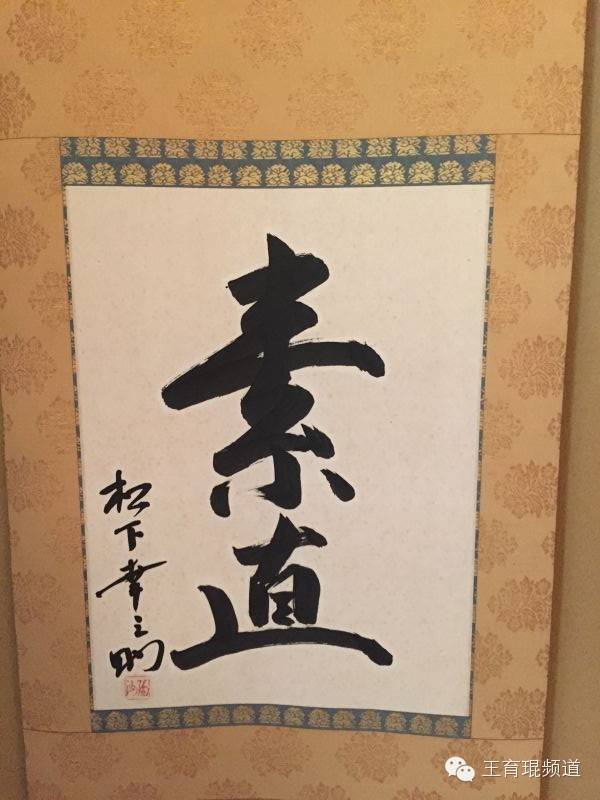 素直
松下幸之助
王育琨频道